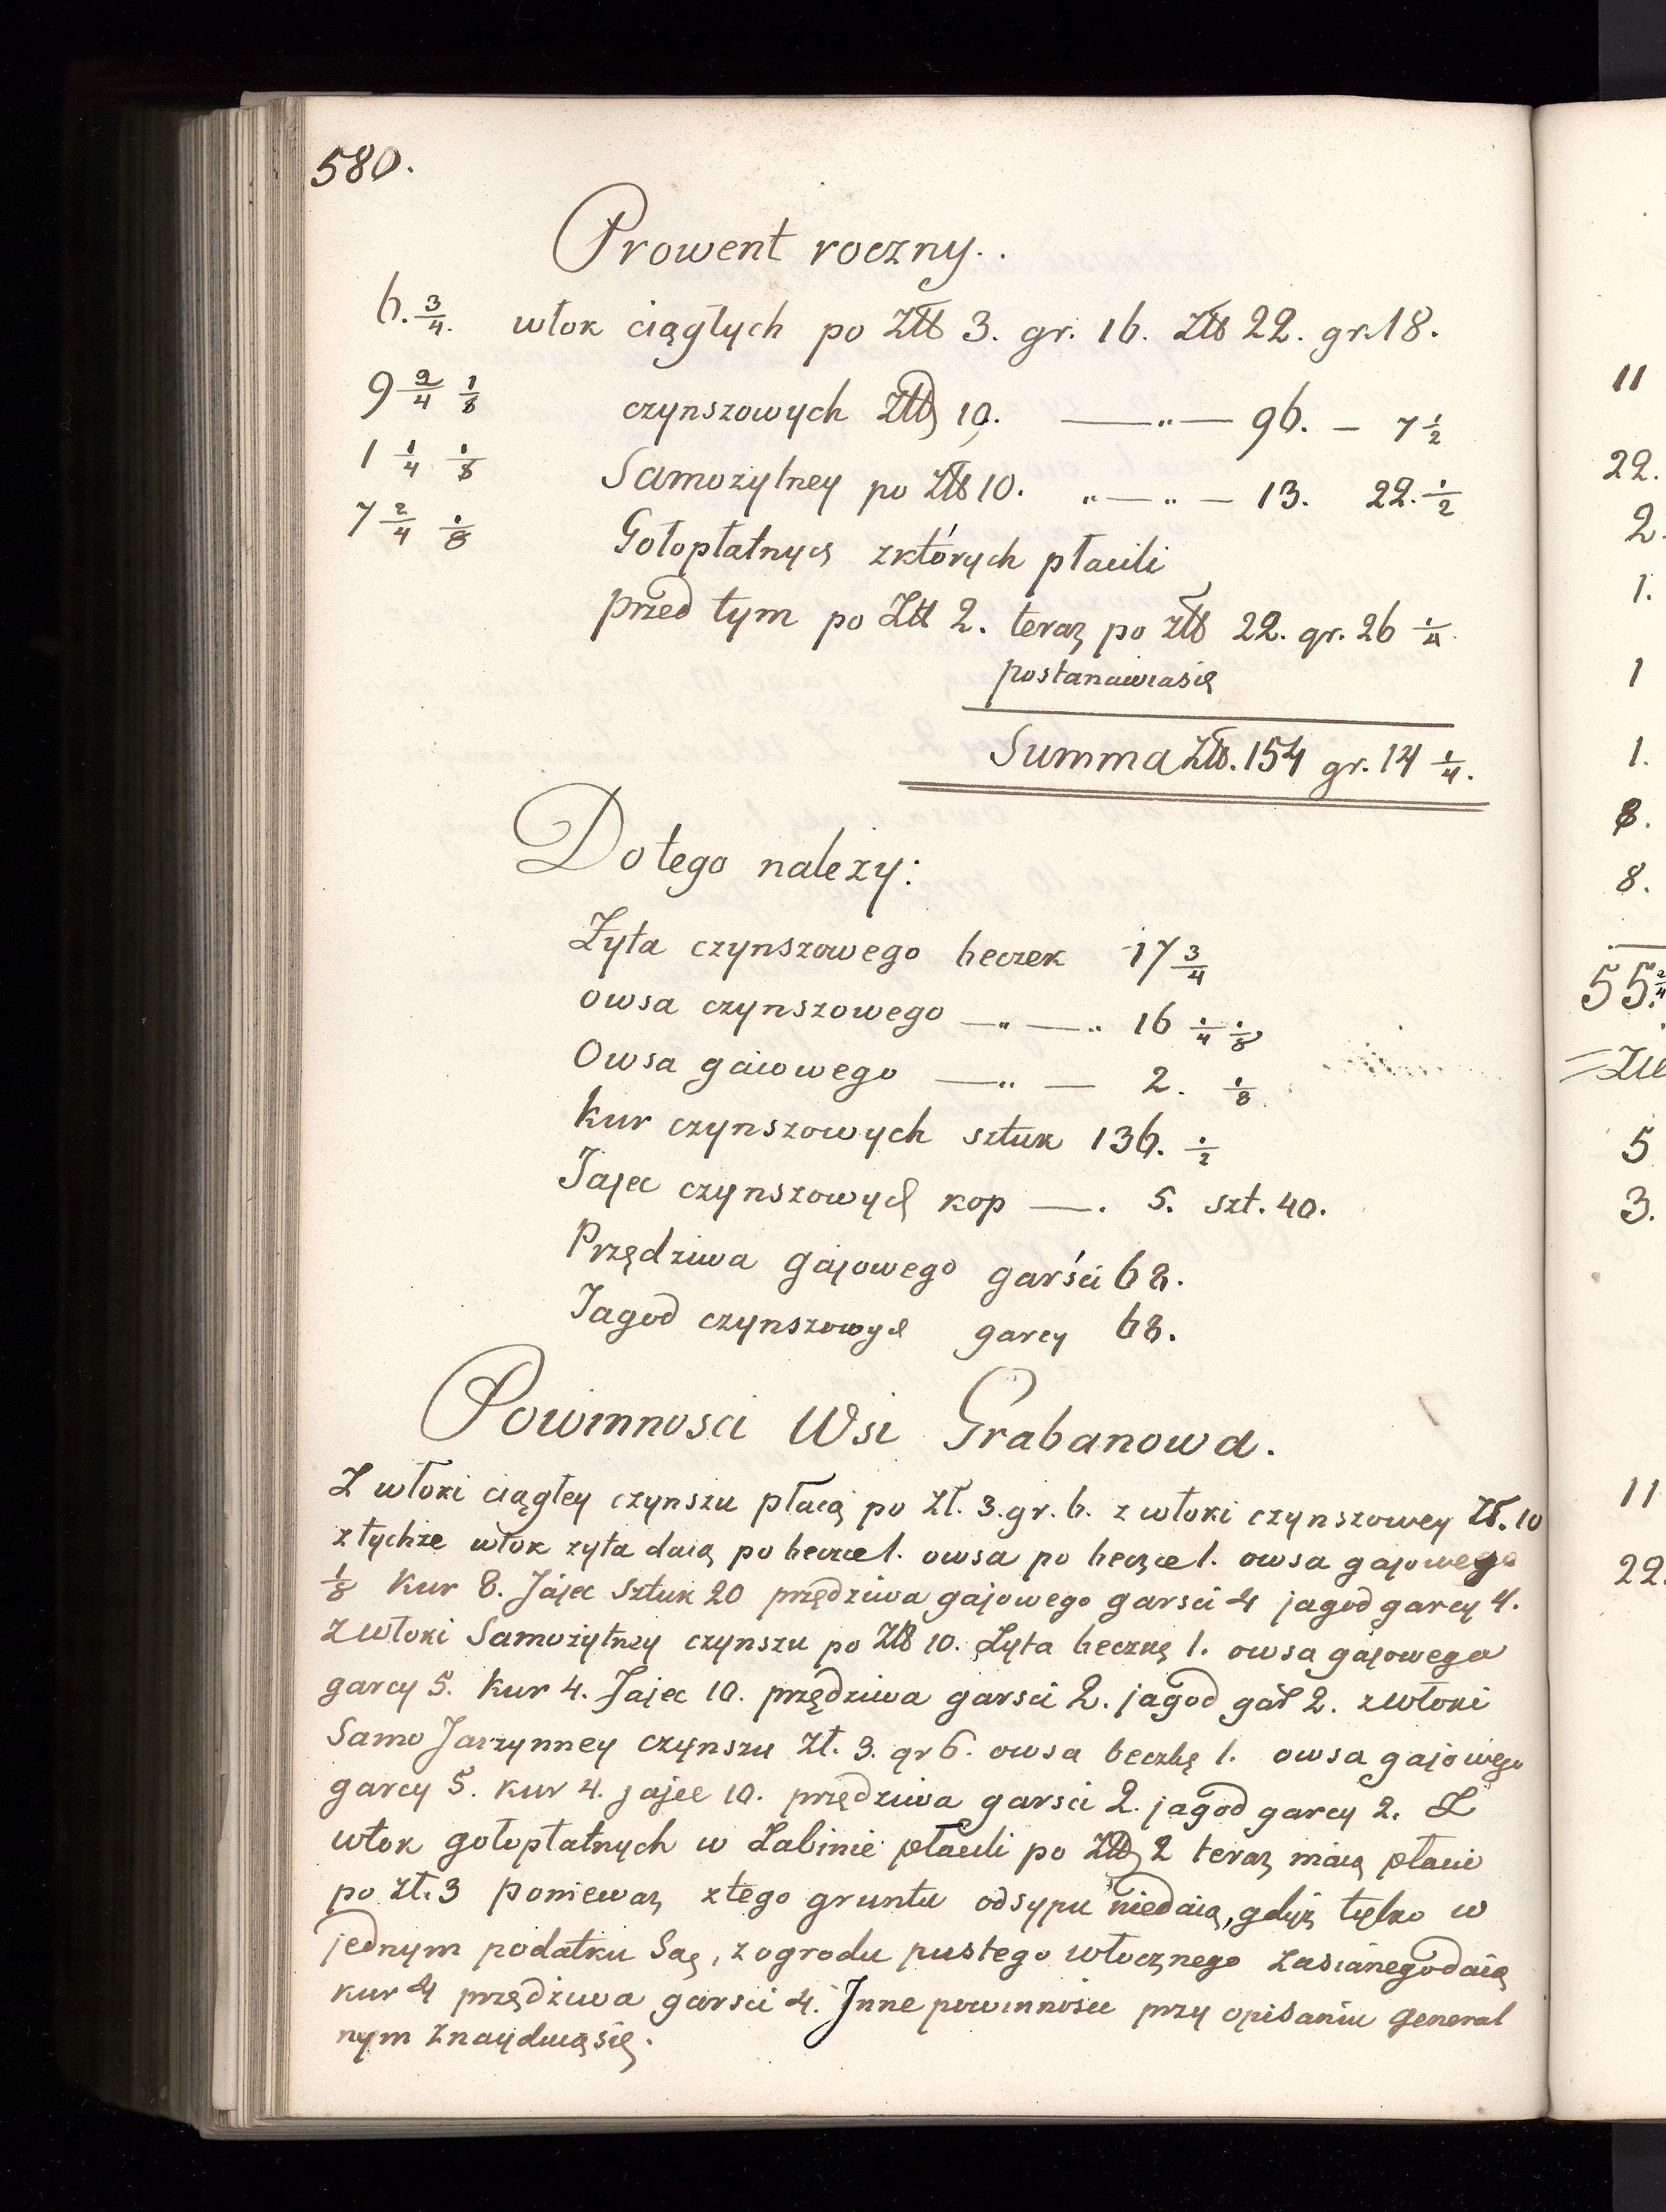 580.
Prowent roczny..
6. 3/4. włok ciągłych po Złł 3. gr. 16. Złł 22. gr. 18.
9 2/4 1/8 czynszowych Złł 10. — „ — 96. — 7 1/2
1 1/4 1/8 Samozytney po Złł 10. „ — „ — 13. 22. 1/2
7 2/4 1/8 Gołopłatnych zktórych płacili
przed tym po Złł 2. teraz po złł 22. gr. 26 1/4
postanawiasię
Summa Złł. 154 gr. 14 1/4.
Do tego nalezy:
Zyta czynszowego beczek 17 3/4
owsa czynszowego — „ — „ 16 1/4 1/8
Owsa gaiowego — „ — 2. 1/8
kur czynszowych sztuk 136. 1/2
Jajec czynszowych kop —. 5. szt. 40.
Przędziwa gajowego garści 68.
Jagod czynszowych garcy 68.
Powinnosci Wsi Grabanowa.
Z włoki ciągłey czynszu płacą po Zł. 3. gr. 6. z włoki czynszowey Zł. 10
z tychze włok zyta daią po beczce 1. owsa po beczce 1. owsa gajowego
1/8 Kur 8. Jajec Sztuk 20 przędziwa gajowego garsci 4 jagod garcy 4.
z włoki Samozytney czynszu po Złł 10. Zyta beczkę 1. owsa gajowego
garcy 5. kur 4. Jajec 10. przędziwa garsci 2. jagod gar 2. z włoki
Samo Jarzynney czynszu Zł. 3. gr 6. owsa beczkę 1. owsa gajowego
garcy 5. kur 4. jajec 10. przędziwa garsci 2. jagod garcy 2. Z
włok gołopłatnych w Łabinie płacili po Złł 2 teraz maią płacic
po Zł. 3 Poniewaz ztego gruntu odsypu niedaią, gdyż tylko w
jednym podatku Są, z ogrodu pustego włocznego zasianego daią
kur 4 przędziwa garsci 4. Inne powinnosci przy opisaniu general
nym znayduią się.
11
22.
2.
1.
1
1.
8.
8.
55. 2/4
5
3.
11
22.